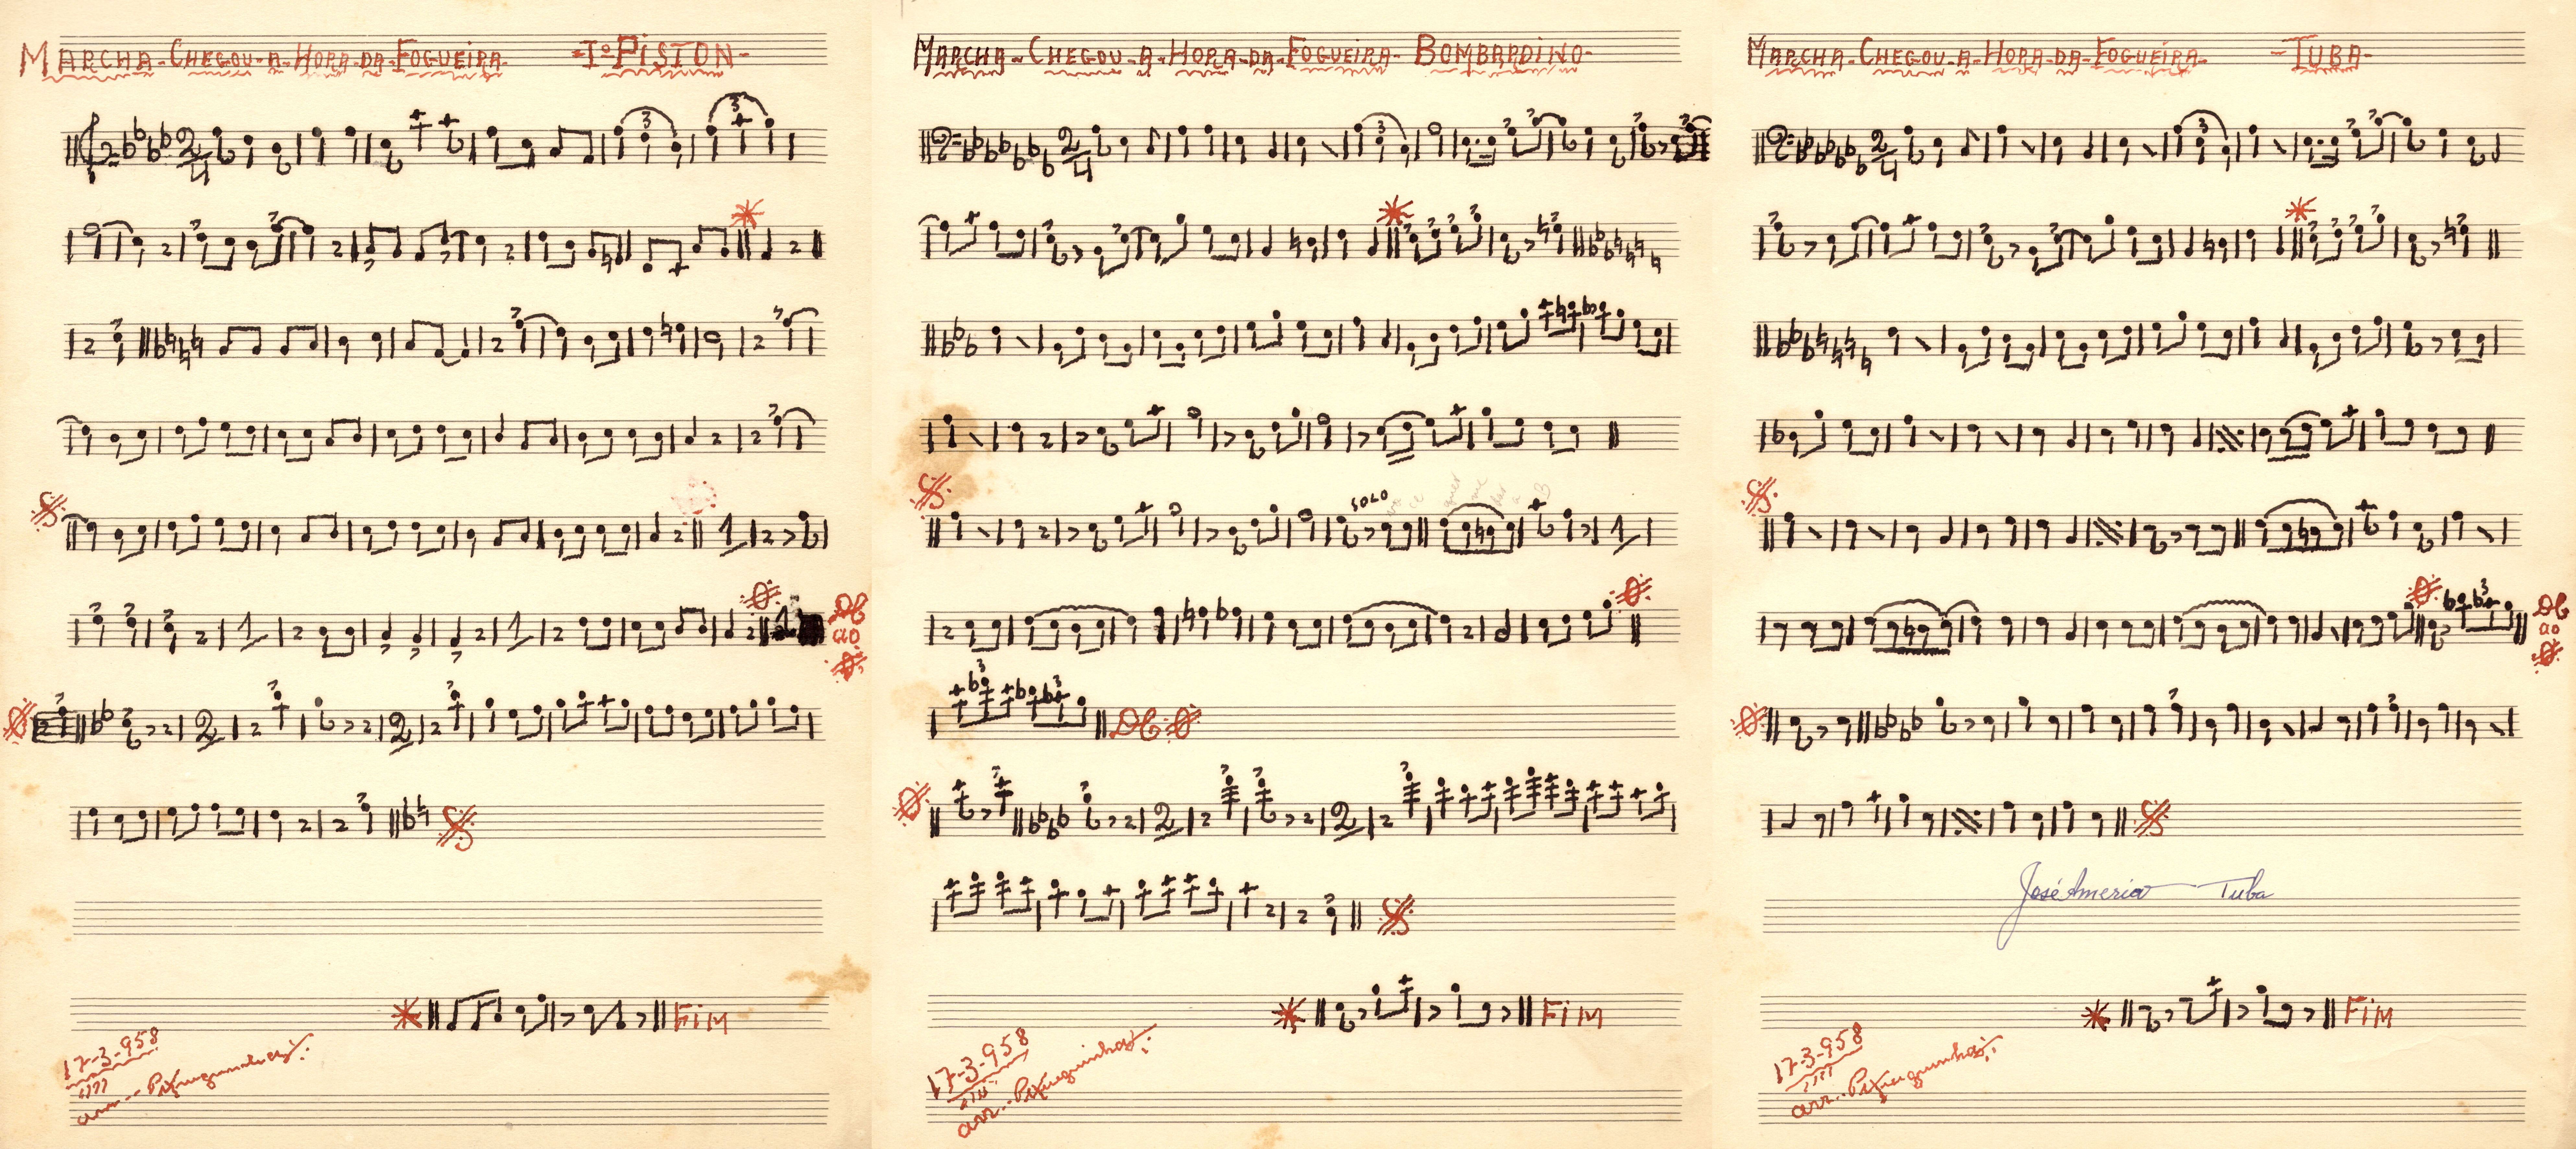 MARCHA-CHEGOU-A-HORA-DA-FOGUEIRA- -Iº PISTON-
DC
ao
FIM
17-3-958
arr--Pixinguinha
MARCHA-CHEGOU-A-HORA-DA-FOGUEIRA- BOMBARDINO-
SOLO
DC
FIM
17-3-958
arr..Pixinguinha
MARCHA-CHEGOU-A-HORA-DA-FOGUEIRA- -TUBA-
DC
ao
José America Tuba
FIM
17-3-958
arr..Pixinguinha